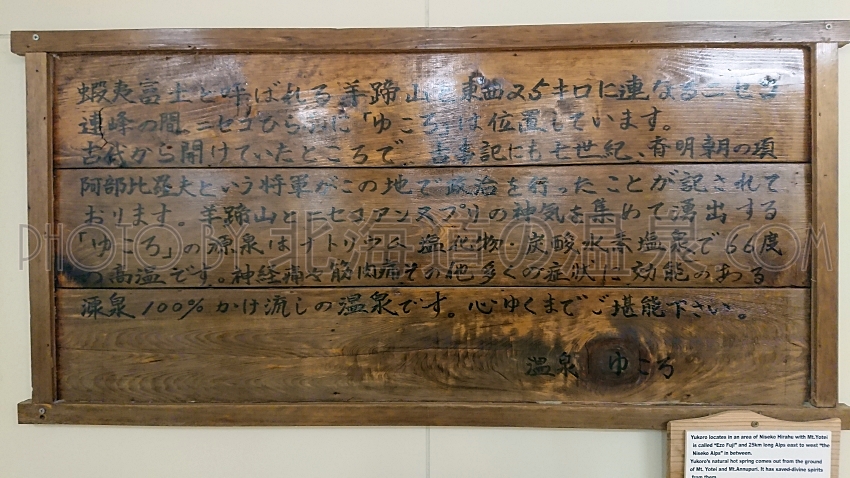 蝦夷富士と呼ばれる羊蹄山と東西25キロに連なるニセコ
連峰の間、ニセコひらふに「ゆころ」は位置しています。
古代から開けていたところで、古事記にも七世紀、斉明朝の項
阿部比羅夫という将軍がこの地で政治を行ったことが記されて
おります。羊蹄山とニセコアンヌプリの神気を集めて湧出する
「ゆころ」の源泉はナトリウム塩化物・炭酸水素塩泉で66度
の高温です。神経痛や筋肉痛その他多くの症状に効能のある
源泉100%かけ流しの温泉です。心ゆくまでご堪能下さい。
温泉 ゆころ
PHOTO BY 北海道の温泉
Yukoro locates in an area of Niseko Hirahu with Mt.Yotei
is called "Ezo Fuji" and 25km long Alps east to west "the
Niseko Alps" in between.
Yukoro's natural hot spring comes out from the ground
of Mt. Yotei and Mt.Annupuri. It has saved-divine spirits
from them.